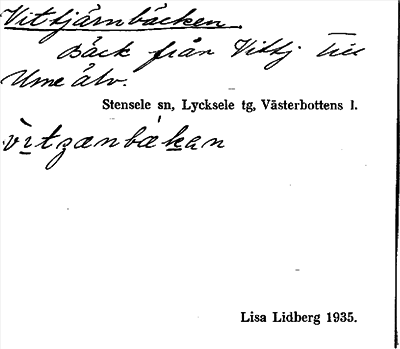 Vittjärnbäcken.
Bäck från Vittj. till
Ume älv.
Stensele sn, Lycksele tg, Västerbottens l.
vìtzænbákan
Lisa Lidberg 1935.